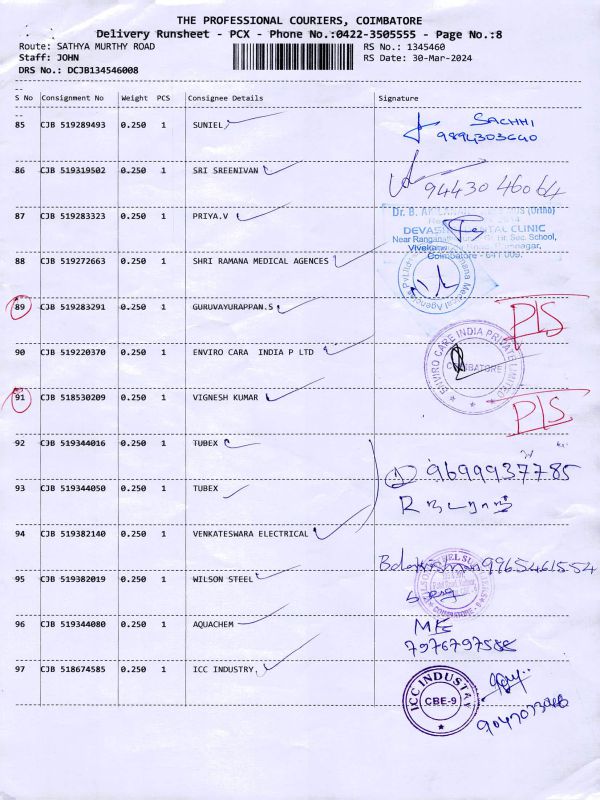 THE PROFESSIONAL COURIERS, COIMBATORE
Delivery Runsheet - PCX - Phone No.:0422-3505555 - Page No.:8
Route: SATHYA MURTHY ROAD RS No.: 1345460
Staff: JOHN RS Date: 30-Mar-2024
DRS No.: DCJB134546008
--
S No Consignment No Weight PCS Consignee Details Signature
--
85 CJB 519289493 0.250 1 SUNIEL SACHHI
9894303640
86 CJB 519319502 0.250 1 SRI SREENIVAN 94430 46064
87 CJB 519283323 0.250 1 PRIYA.V Dr. B. (Ortho)
DENTAL CLINIC
Near Hr. Sec. School,
Coimbatore - 641 009.
88 CJB 519272663 0.250 1 SHRI RAMANA MEDICAL AGENCES
89 CJB 519283291 0.250 1 GURUVAYURAPPAN.S PIS
90 CJB 519220370 0.250 1 ENVIRO CARA INDIA P LTD ENVIRO CARE INDIA PRIVATE LIMITED
COIMBATORE
91 CJB 518530209 0.250 1 VIGNESH KUMAR PIS
92 CJB 519344016 0.250 1 TUBEX
93 CJB 519344050 0.250 1 TUBEX
94 CJB 519382140 0.250 1 VENKATESWARA ELECTRICAL
95 CJB 519382019 0.250 1 WILSON STEEL
96 CJB 519344080 0.250 1 AQUACHEM
97 CJB 518674585 0.250 1 ICC INDUSTRY ICC INDUSTRY
CBE-9